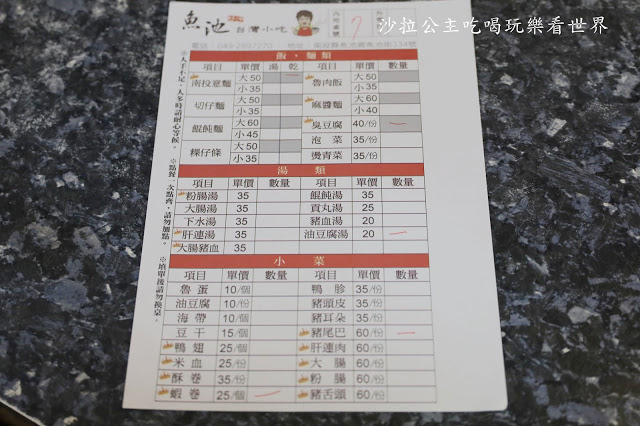 沙拉公主吃喝玩樂看世界
魚池 台灣小吃
電話：049-2897270 地址：南投縣魚池鄉魚池街334號
飯、麵類
項目 單價 湯 乾 項目 單價 數量
南投意麵 大50 小35 魯肉飯 大50 小35
切仔麵 大50 小35 麻醬麵 大60 小40
餛飩麵 大60 小45 臭豆腐 40/份 一
泡菜 35/份
粿仔條 大50 小35 燙青菜 35/份
湯類
項目 單價 數量 項目 單價 數量
粉腸湯 35 餛飩湯 35
大腸湯 35 貢丸湯 25
下水湯 35 豬血湯 20
肝連湯 35 油豆腐湯 20 一
大腸豬血 35
小菜
項目 單價 數量 項目 單價 數量
魯蛋 10/個 鴨胗 35/份
油豆腐 10/份 豬頭皮 35/份
海帶 10/個 豬耳朵 35/份
豆干 15/個 豬尾巴 60/份 一
鴨翅 25/個 肝連肉 60/份
米血 25/份 大腸 60/份
酥卷 35/份 粉腸 60/份
蝦卷 25/個 一 豬舌頭 60/份
※人手不足，人多時請耐心等候。
※點餐一次點齊，請勿加點。
※填單後請勿換桌。